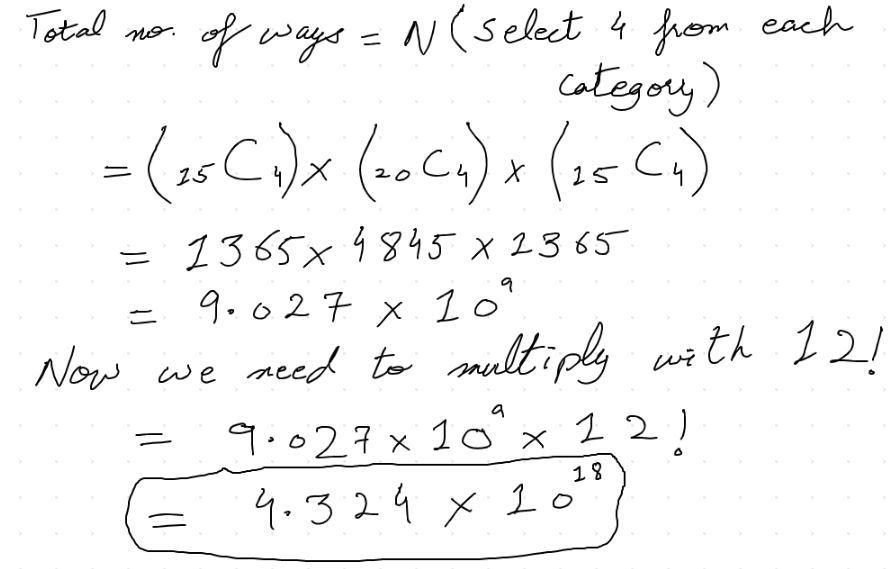 Total no. of ways = N(select 4 from each
category)
= (₁₅C₄) × (₂₀C₄) × (₁₅C₄)
= 1365 × 4845 × 1365
= 9.027 × 10⁹
Now we need to multiply with 12!
= 9.027 × 10⁹ × 12!
= 4.324 × 10¹⁸